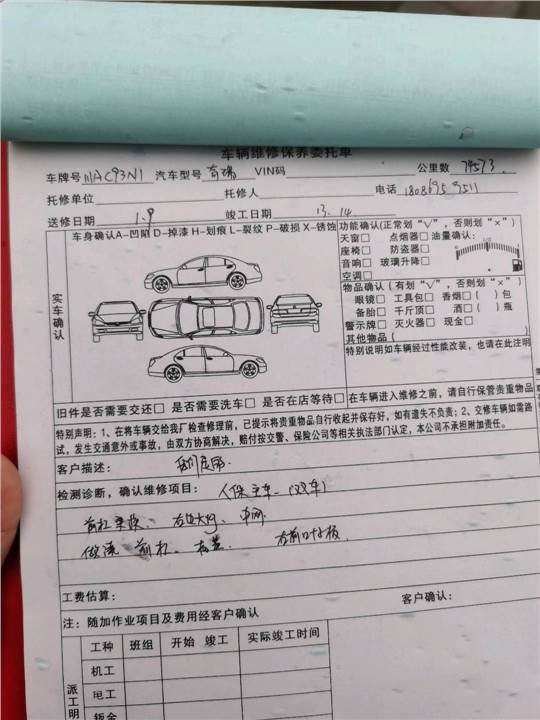 车辆维修保养委托单
车牌号 MAC93N1 汽车型号 奇瑞 VIN码 公里数 79573
托修单位 托修人 电话
送修日期 1.9 竣工日期 13.14
车身确认A-凹陷 D-掉漆 H-划痕 L-裂纹 P-破损 X-锈蚀
功能确认(正常划“√”,否则划“×”)
天窗□ 点烟器□ 油量确认:
座椅□ 防盗器□
音响□ 玻璃升降□
空调□
物品确认(有划“√”,否则划“×”)
眼镜□ 工具包□ 香烟□( )包
备胎□ 千斤顶□ 酒□( )瓶
警示牌□ 灭火器□ 现金□
其他物品( )
特别说明如车辆经过性能改装,也请在此注明
实车确认
旧件是否需要交还□ 是否需要洗车□ 是否在店等待□
在车辆进入维修之前,请自行保管贵重物品
特别声明:1、在将车辆交给我厂检查修理前,已提示将贵重物品自行收起并保存好,如有遗失不负责;2、交修车辆如需路
试,发生交通意外或事故,由双方协商解决,赔付按交警、保险公司等相关执法部门认定,本公司不承担附加责任。
客户描述:
检测诊断,确认维修项目: 人保
前杠 右边大灯、中网
做漆 前杠、机盖 右前叶子板
工费估算: 客户确认:
注:随加作业项目及费用经客户确认
工种 班组 开始 竣工 实际竣工时间
机工
电工
钣金
派工明